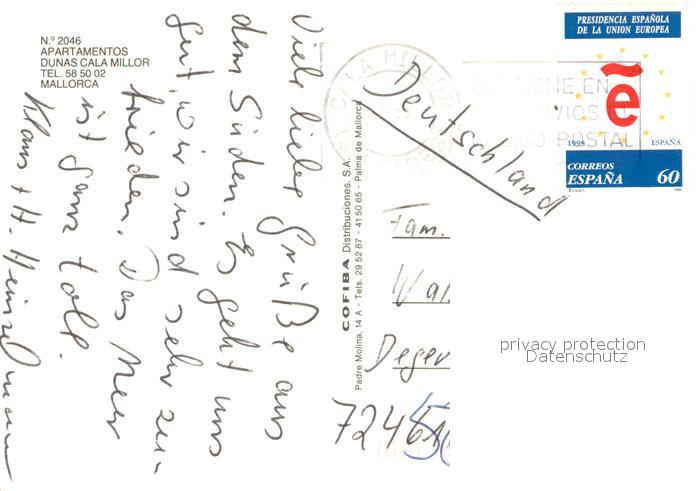 N.º 2046
APARTAMENTOS
DUNAS CALA MILLOR
TEL. 58 50 02
MALLORCA
Viele liebe Grüße aus
dem Süden. Es geht uns
gut, wir sind sehr zu-
frieden. Das Meer
ist ganz toll.
Klaus + H. Heinzelmann
COFIBA Distribuciones, S.A.
Padre Molina, 14 A - Tels. 29 52 87 - 41 50 65 - Palma de Mallorca
CALA MILLOR
EN
POSTAL
PRESIDENCIA ESPAÑOLA
DE LA UNION EUROPEA
ẽ
1995 ESPAÑA
CORREOS
ESPAÑA 60
Deutschland
Fam.
Wal
Deger
72461
privacy protection
Datenschutz